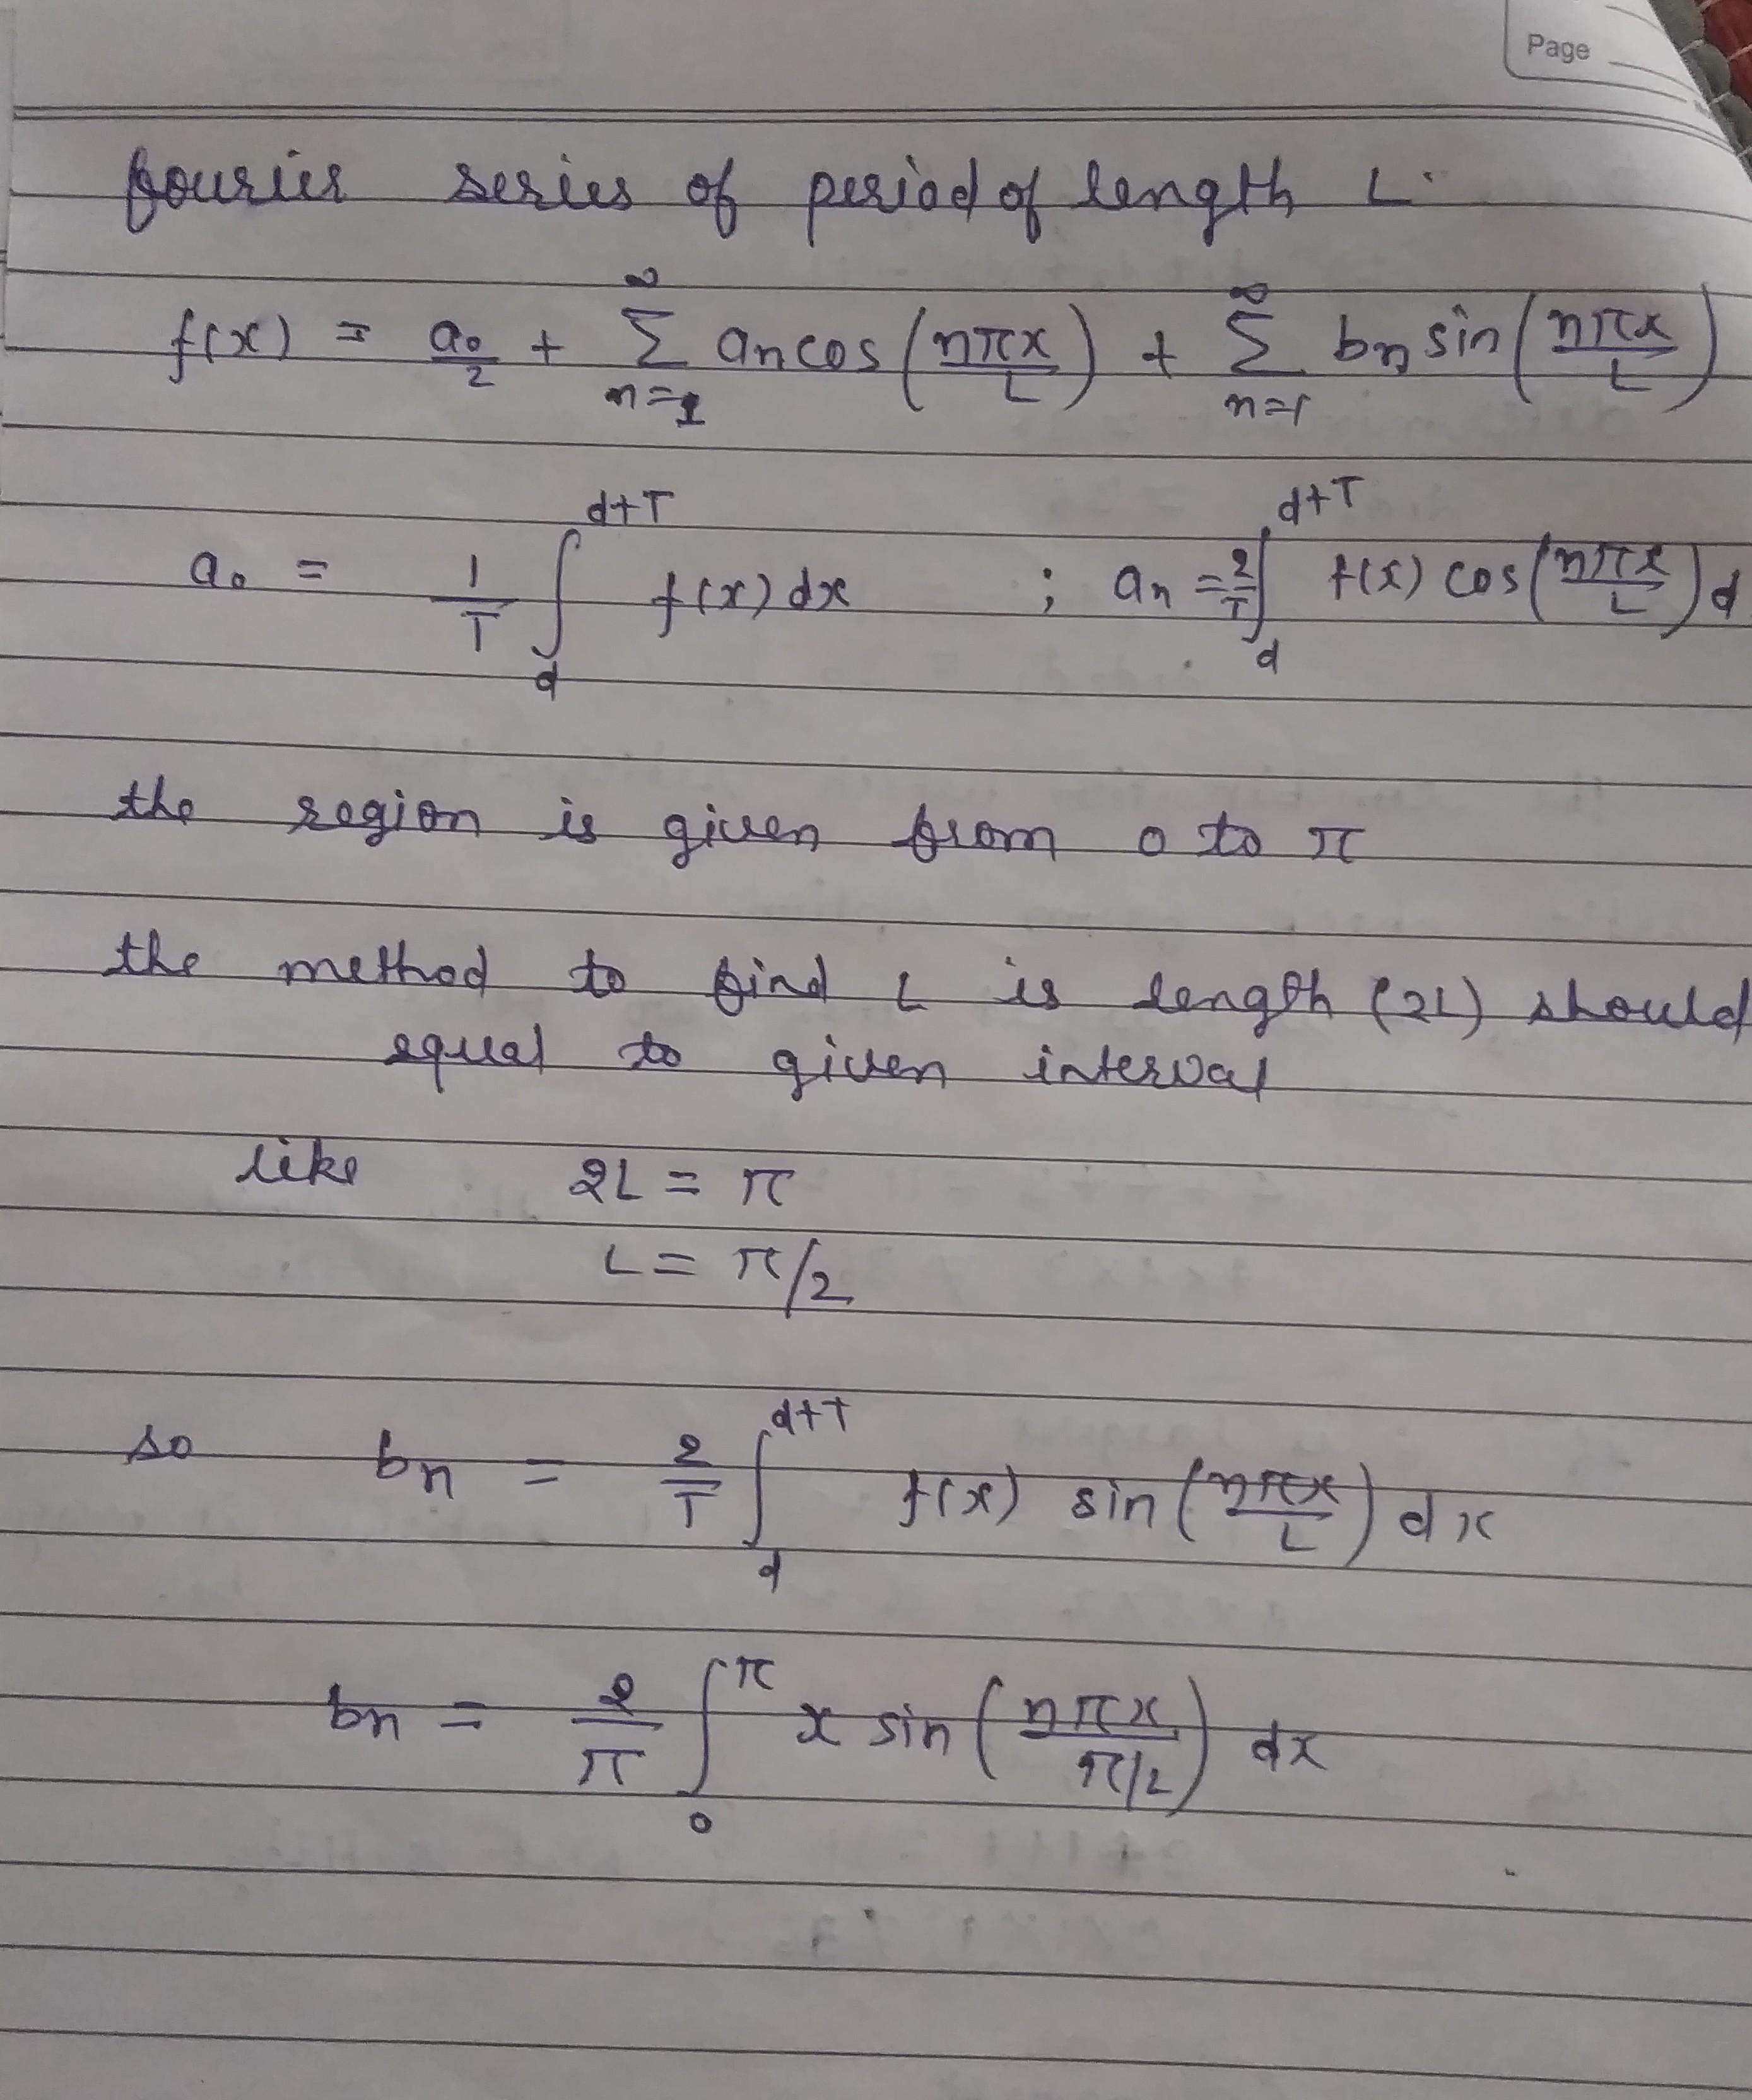 Page
fourier series of period of length L.
f(x) = a₀/2 + ∑_{n=1}^{∞} aₙ cos(nπx/L) + ∑_{n=1}^{∞} bₙ sin(nπx/L)
a₀ = 1/T ∫_{d}^{d+T} f(x) dx ; aₙ = 2/T ∫_{d}^{d+T} f(x) cos(nπx/L) d
the region is given from 0 to π
the method to find L is length (2L) should
equal to given interval
like 2L = π
L = π/2
so bₙ = 2/T ∫_{d}^{d+T} f(x) sin(nπx/L) dx
bₙ = 2/π ∫_{0}^{π} x sin(nπx/π/2) dx